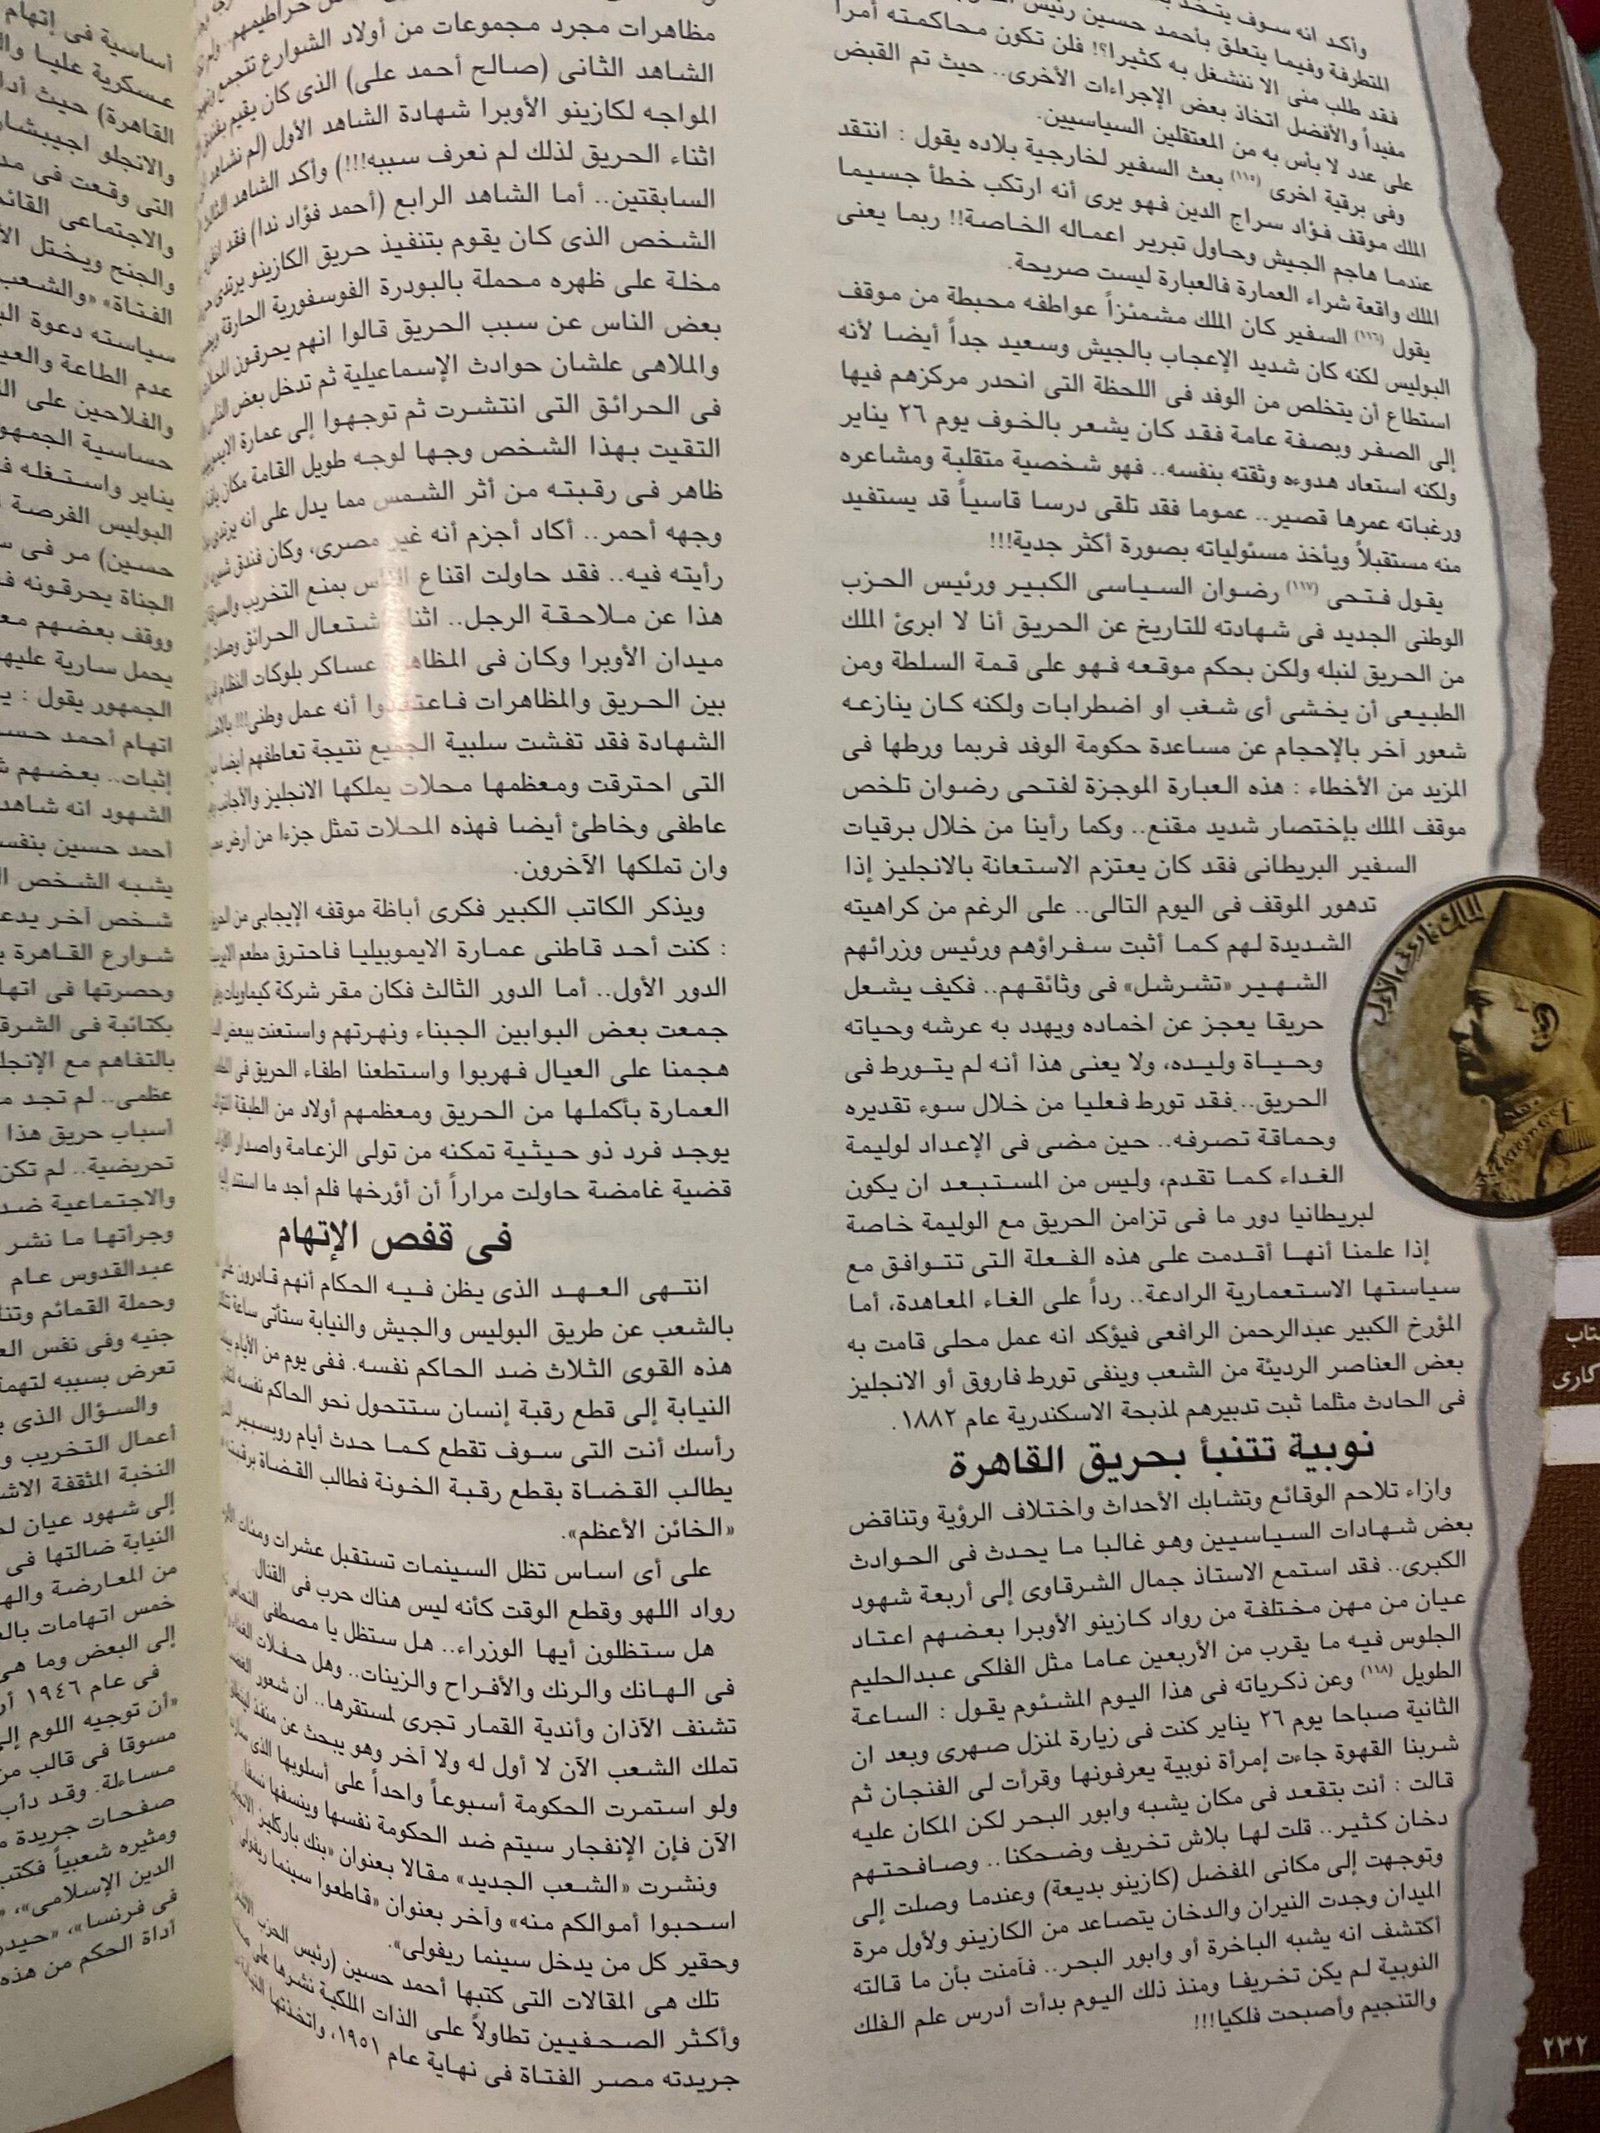 وأكد انه سوف يتخذ
المتطرفة وفيما يتعلق بأحمد حسين رئيس
فقد طلب منى الا ننشغل به كثيرا؟! فلن تكون محاكمته أمرا
مفيداً والأفضل اتخاذ بعض الإجراءات الأخرى.. حيث تم القبض
على عدد لا بأس به من المعتقلين السياسيين.
وفى برقية اخرى (١١٥) بعث السفير لخارجية بلاده يقول : انتقد
الملك موقف فؤاد سراج الدين فهو يرى أنه ارتكب خطأ جسيما
عندما هاجم الجيش وحاول تبرير اعماله الخاصة!! ربما يعنى
الملك واقعة شراء العمارة فالعبارة ليست صريحة.
يقول (١١٦) السفير كان الملك مشمئزاً عواطفه محبطة من موقف
البوليس لكنه كان شديد الإعجاب بالجيش وسعيد جداً أيضا لأنه
استطاع أن يتخلص من الوفد فى اللحظة التى انحدر مركزهم فيها
إلى الصفر وبصفة عامة فقد كان يشعر بالخوف يوم ٢٦ يناير
ولكنه استعاد هدوءه وثقته بنفسه.. فهو شخصية متقلبة ومشاعره
ورغباته عمرها قصير.. عموما فقد تلقى درسا قاسياً قد يستفيد
منه مستقبلاً ويأخذ مسئولياته بصورة أكثر جدية!!!
يقول فتحى (١١٧) رضوان السياسى الكبير ورئيس الحزب
الوطنى الجديد فى شهادته للتاريخ عن الحريق أنا لا ابرئ الملك
من الحريق لنبله ولكن بحكم موقعه فهو على قمة السلطة ومن
الطبيعى أن يخشى أى شغب او اضطرابات ولكنه كان ينازعه
شعور آخر بالإحجام عن مساعدة حكومة الوفد فربما ورطها فى
المزيد من الأخطاء : هذه العبارة الموجزة لفتحى رضوان تلخص
موقف الملك بإختصار شديد مقنع.. وكما رأينا من خلال برقيات
السفير البريطانى فقد كان يعتزم الاستعانة بالانجليز إذا
تدهور الموقف فى اليوم التالى.. على الرغم من كراهيته
الشديدة لهم كما أثبت سفراؤهم ورئيس وزرائهم
الشهير «تشرشل» فى وثائقهم.. فكيف يشعل
حريقا يعجز عن اخماده ويهدد به عرشه وحياته
وحياة وليده، ولا يعنى هذا أنه لم يتورط فى
الحريق.. فقد تورط فعليا من خلال سوء تقديره
وحماقة تصرفه.. حين مضى فى الإعداد لوليمة
الغداء كما تقدم، وليس من المستبعد ان يكون
لبريطانيا دور ما فى تزامن الحريق مع الوليمة خاصة
إذا علمنا أنها أقدمت على هذه الفعلة التى تتوافق مع
سياستها الاستعمارية الرادعة.. رداً على الغاء المعاهدة، أما
المؤرخ الكبير عبدالرحمن الرافعى فيؤكد انه عمل محلى قامت به
بعض العناصر الرديئة من الشعب وينفى تورط فاروق أو الانجليز
فى الحادث مثلما ثبت تدبيرهم لمذبحة الاسكندرية عام ١٨٨٢ .
نوبية تتنبأ بحريق القاهرة
وازاء تلاحم الوقائع وتشابك الأحداث واختلاف الرؤية وتناقض
بعض شهادات السياسيين وهو غالبا ما يحدث فى الحوادث
الكبرى.. فقد استمع الاستاذ جمال الشرقاوى إلى أربعة شهود
عيان من مهن مختلفة من رواد كازينو الأوبرا بعضهم اعتاد
الجلوس فيه ما يقرب من الأربعين عاما مثل الفلكى عبدالحليم
الطويل (١١٨) وعن ذكرياته فى هذا اليوم المشئوم يقول : الساعة
الثانية صباحا يوم ٢٦ يناير كنت فى زيارة لمنزل صهرى وبعد ان
شربنا القهوة جاءت إمرأة نوبية يعرفونها وقرأت لى الفنجان ثم
قالت : أنت بتقعد فى مكان يشبه وابور البحر لكن المكان عليه
دخان كثير.. قلت لها بلاش تخريف وضحكنا.. وصافحتهم
وتوجهت إلى مكانى المفضل (كازينو بديعة) وعندما وصلت إلى
الميدان وجدت النيران والدخان يتصاعد من الكازينو ولأول مرة
أكتشف انه يشبه الباخرة أو وابور البحر.. فآمنت بأن ما قالته
النوبية لم يكن تخريفا ومنذ ذلك اليوم بدأت أدرس علم الفلك
والتنجيم وأصبحت فلكيا!!!
الملك فاروق الأول
٢٣٢
مظاهرات مجرد مجموعات من أولاد الشوارع تتجمع
الشاهد الثانى (صالح أحمد على) الذى كان يقيم
المواجه لكازينو الأوبرا شهادة الشاهد الأول (لم نشاهد
اثناء الحريق لذلك لم نعرف سببه!!!) وأكد الشاهد الثالث
السابقتين.. أما الشاهد الرابع (أحمد فؤاد ندا) فقد
الشخص الذى كان يقوم بتنفيذ حريق الكازينو يرتدى
مخلة على ظهره محملة بالبودرة الفوسفورية الحارقة
بعض الناس عن سبب الحريق قالوا انهم يحرقون
والملاهى علشان حوادث الإسماعيلية ثم تدخل بعض
فى الحرائق التى انتشرت ثم توجهوا إلى عمارة
التقيت بهذا الشخص وجها لوجه طويل القامة مكان
ظاهر فى رقبته من أثر الشمس مما يدل على انه يرتدى
وجهه أحمر.. أكاد أجزم أنه غير مصرى، وكان فندق
رأيته فيه.. فقد حاولت اقناع الناس بمنع التخريب
هذا عن ملاحقة الرجل.. اثناء اشتعال الحرائق
ميدان الأوبرا وكان فى المظاهرة عساكر بلوكات النظام
بين الحريق والمظاهرات فاعتقدوا أنه عمل وطنى!!!
الشهادة فقد تفشت سلبية الجميع نتيجة تعاطفهم أيضا
التى احترقت ومعظمها محلات يملكها الانجليز والأجانب
عاطفى وخاطئ أيضا فهذه المحلات تمثل جزءا من أرض
وان تملكها الآخرون.
ويذكر الكاتب الكبير فكرى أباظة موقفه الإيجابى من
: كنت أحد قاطنى عمارة الايموبيليا فاحترق مطعم
الدور الأول.. أما الدور الثالث فكان مقر شركة كيماويات
جمعت بعض البوابين الجبناء ونهرتهم واستعنت ببعض
هجمنا على العيال فهربوا واستطعنا اطفاء الحريق فى
العمارة بأكملها من الحريق ومعظمهم أولاد من الطبقة
يوجد فرد ذو حيثية تمكنه من تولى الزعامة واصدار
قضية غامضة حاولت مراراً أن أؤرخها فلم أجد ما استند
فى قفص الإتهام
انتهى العهد الذى يظن فيه الحكام أنهم قادرون
بالشعب عن طريق البوليس والجيش والنيابة ستأتى ساعة
هذه القوى الثلاث ضد الحاكم نفسه. ففى يوم من الأيام
النيابة إلى قطع رقبة إنسان ستتحول نحو الحاكم نفسه
رأسك أنت التى سوف تقطع كما حدث أيام روبسبير
يطالب القضاة بقطع رقبة الخونة فطالب القضاة
«الخائن الأعظم».
على أى اساس تظل السينمات تستقبل عشرات ومئات
رواد اللهو وقطع الوقت كأنه ليس هناك حرب فى القنال
هل ستظلون أيها الوزراء.. هل ستظل يا مصطفى النحاس
فى الهانك والرنك والأفراح والزينات.. وهل حفلات
تشنف الآذان وأندية القمار تجرى لمستقرها.. ان شعور
تملك الشعب الآن لا أول له ولا آخر وهو يبحث عن منفذ
ولو استمرت الحكومة أسبوعاً واحداً على أسلوبها الذى
الآن فإن الإنفجار سيتم ضد الحكومة نفسها وينسفها نسفا
ونشرت «الشعب الجديد» مقالا بعنوان «بنك باركليز
اسحبوا أموالكم منه» وآخر بعنوان «قاطعوا سينما ريفولى
وحقير كل من يدخل سينما ريفولى».
تلك هى المقالات التى كتبها أحمد حسين (رئيس الحزب
وأكثر الصحفيين تطاولاً على الذات الملكية نشرها على
جريدته مصر الفتاة فى نهاية عام ١٩٥١، واتخذتها
أساسية فى إتهام
عسكرية عليا
القاهرة) حيث
والانجلو
التى وقعت فى
والاجتماعى
والجنح ويختل
الفتاة» «والشعب
سياسته دعوة
عدم الطاعة
والفلاحين على
حساسية
يناير واستغله
البوليس الفرصة
حسين) مر فى
الجناة يحرقونه
ووقف بعضهم
يحمل سارية
الجمهور يقول :
اتهام أحمد
إثبات.. بعضهم
الشهود انه شاهد
أحمد حسين بنفسه
يشبه الشخص
شخص آخر يدعى
شوارع القاهرة
وحصرتها فى
بكتائبة فى
بالتفاهم مع
عظمى.. لم تجد
أسباب حريق هذا
تحريضية.. لم تكن
والاجتماعية ضد
وجرأتها ما نشر
عبدالقدوس عام
وحملة القمائم
جنيه وفى نفس
تعرض بسببه
والسؤال الذى
أعمال التخريب
النخبة المثقفة
إلى شهود عيان
النيابة ضالتها فى
من المعارضة
خمس اتهامات
إلى البعض وما هى
فى عام ١٩٤٦
«أن توجيه اللوم
مسوقا فى قالب
مساءلة. وقد دأب
صفحات جريدة
ومثيره شعبياً
الدين الإسلامى»،
فى فرنسا»،
أداة الحكم من هذه